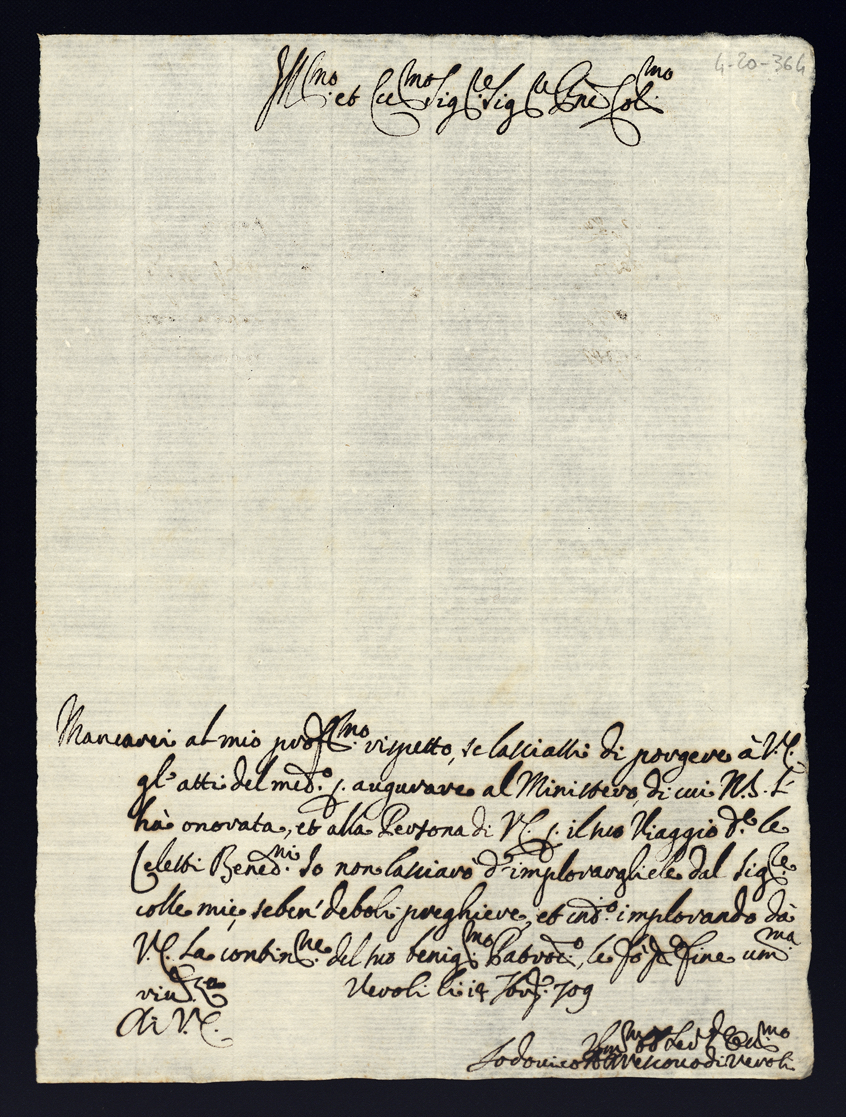 4-20-364
Ill.mo et Ecc.mo Sig.re Sig.re Pne Col.mo
Mancarei al mio prof.mo rispetto, se lasciassi di porgere à V.E.
gl'atti del med.o p. augurare al Ministero, di cui N.S. l'
hà onorata, et alla Persona di V.E. p. il suo Viaggio le
Celesti Bened.ni Io non lasciarò d'implorargliele dal Sig.re
colle mie, seben' deboli preghiere, et implorando dà
V.E. la contin.ne del suo benig.mo Patroc.o, le fò fine um.ma
riv.za Veroli li 14 709
di V.E.
Lodovico Vescovo di Veroli